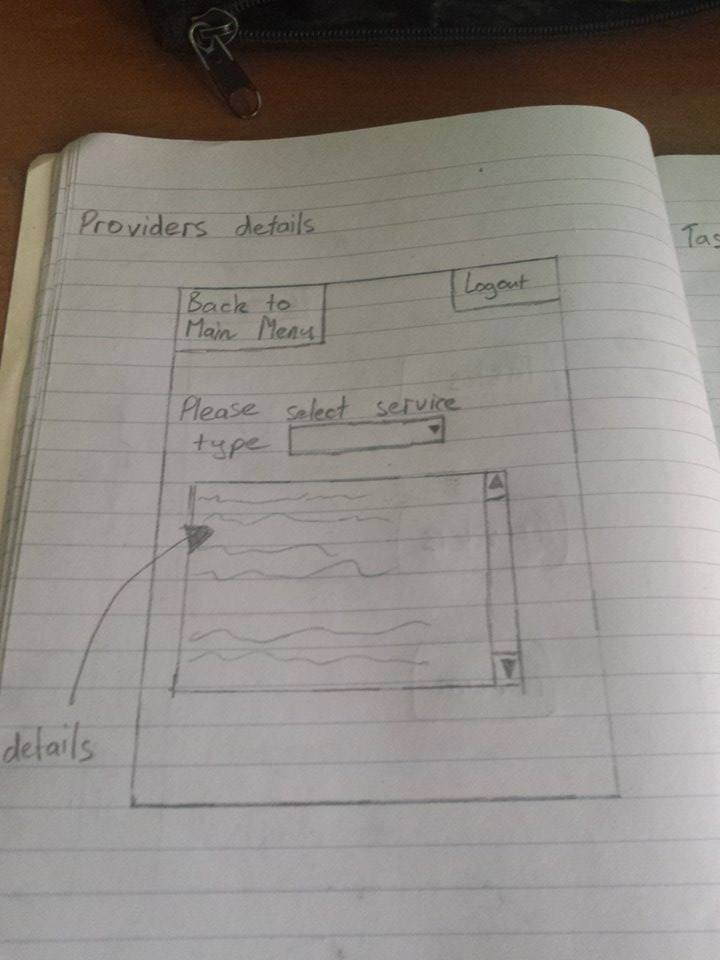 Providers details
Tas
Back to
Main Menu
Logout
Please select service
type
details